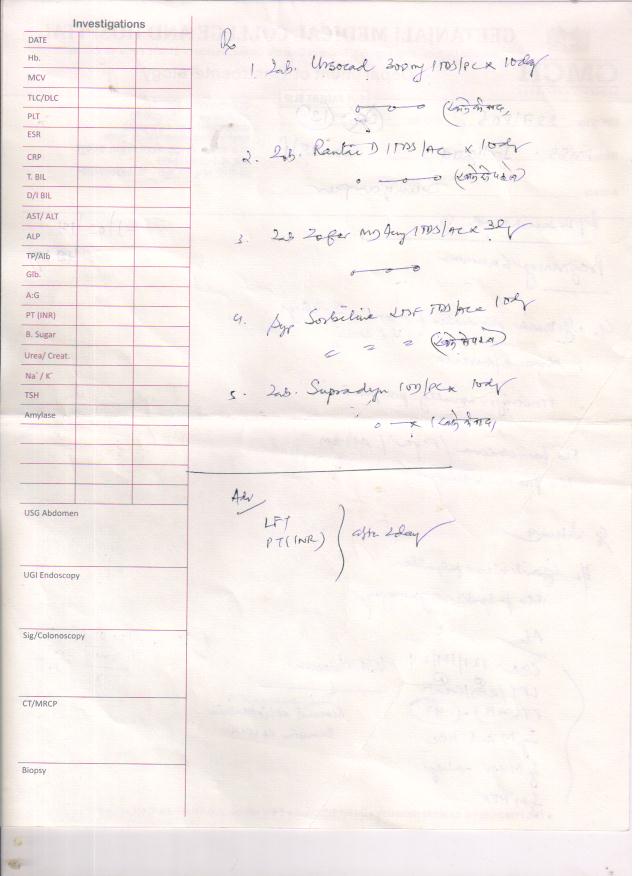 Investigations
DATE
Hb.
MCV
TLC/DLC
PLT
ESR
CRP
T. BIL
D/I BIL
AST/ ALT
ALP
TP/Alb
Glb.
A:G
PT (INR)
B. Sugar
Urea/ Creat.
Na⁺/ K⁺
TSH
Amylase
USG Abdomen
UGI Endoscopy
Sig/Colonoscopy
CT/MRCP
Biopsy
Rx
1. Tab. Ursocad 300mg 1TDS/PC x 10day
(खाने के बाद)
2. Tab. Rantac D 1TDS/AC x 10day
(खाने से पहले)
3. Tab Zofer 1TDS/AC x 3
4. Syp TDS/AC x 10day
(खाने से पहले)
5. Tab. Supradyn 1OD/PC x 10day
(खाने के बाद)
Adv
LFT
PT(INR)
after 2day